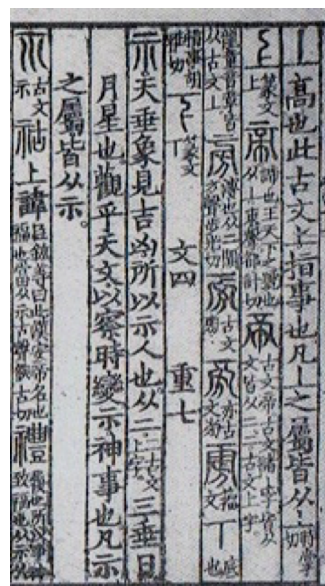 丄高也此古文上指事也凡丄之屬皆从丄時掌切
篆文帝諦也王天下之號也从丄朿聲都計切古文帝古文諸丄字皆从一篆文皆从二二古文上字
龍童音章皆从古文上旁溥也从二闕方聲步光切古文旁亦古文旁籀文丅底也
指事胡雅切篆文丅文四重七
示天垂象見吉凶所以示人也从二二古文上字三垂日
月星也觀乎天文以察時變示神事也凡示
之屬皆从示
古文示祜上諱臣鉉等曰此漢安帝名也福也當从示古聲候古切禮履也所以事神致福也从示从